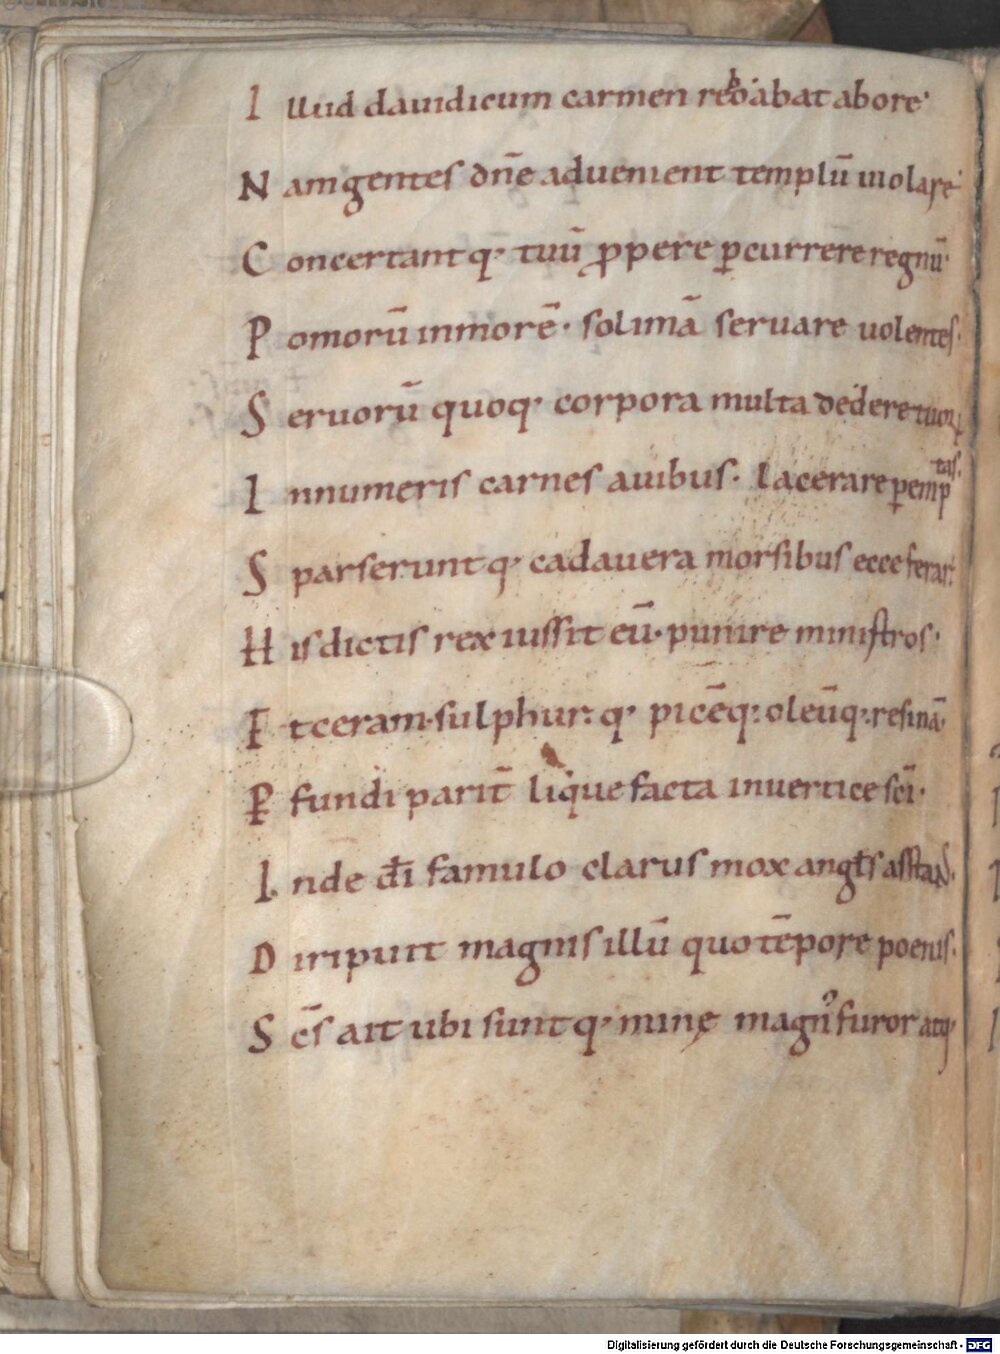 Illud dauidicum carmen reboabat abore·
Nam gentes dñe aduenient templū uiolare·
Concertantq· tuū ꝓpere ꝑcurrere regnū·
Pomorū inmorē· solimā seruare uolentes·
Seruorū quoq· corpora multa dedere tuoꝝ
Innumeris carnes auibus· lacerare ꝑemptas·
Sparseruntq· cadauera morsibus ecce feraꝝ·
His dictis rex iussit eū· punire ministros·
Et ceram· sulphur:q· picēq: oleūq: resinā·
Ꝑfundi parit̄ liquefacta inuertice sc̄i·
Inde dī famulo clarus mox angls̄ asstans·
Diripuit magnis illū quo tēpore poenis·
Sc̄s ait ubi suntq· minę magn᾽ furor atq·
Digitalisierung gefördert durch die Deutsche Forschungsgemeinschaft - DFG